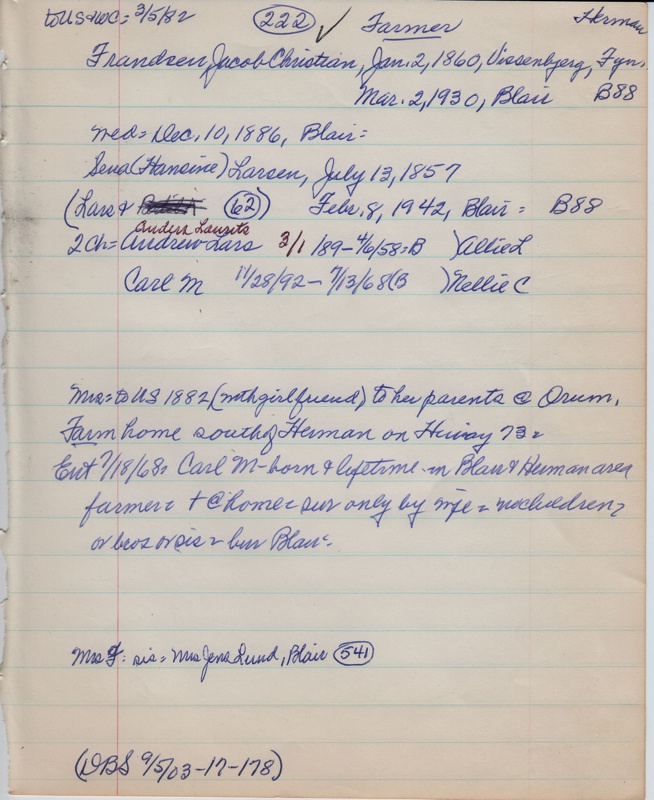 to US + WC = 3/5/82 (222) ✓ Farmer Herman
Frandsen, Jacob Christian, Jan. 2, 1860, Vissenbjerg, Fyn.
Mar. 2, 1930, Blair B88
wed = Dec. 10, 1886, Blair =
Sena (Hansine) Larsen, July 13, 1857
(Lars + (62)) Febr. 8, 1942, Blair = B88
Anders Laurits
2 Ch = Andrew Lars 3/1/89 - 4/6/58 = B ) Allie L
Carl M 11/28/92 - 7/13/68 (B ) Nellie C
Mrs = to US 1882 (with girlfriend) to her parents @ Orum.
Farm home south of Herman on Hiway 73 =
Ent 7/18/68: Carl M - born & lifetime in Blair & Herman area
farmer = + @ home = sur only by wife = no children,
or bros or sis = bur Blair =
Mrs F: sis = Mrs Jens Lund, Blair (541)
(DBS 9/5/03-17-178)